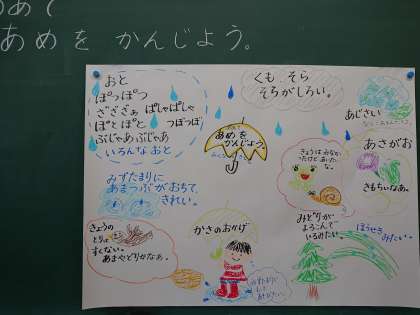 めあて
あめを かんじよう。
おと
ぽっぽつ
ざざざぁ ぱしゃぱしゃ
ぽとぽと つぽっぽ
ぶじゃあぶじゃあ
いろんなおと
くも そら
そらがしろい。
あめを
かんじよう。
あじさい
あさがお
きもちいなあ。
きょうはみなか
ったけどあいた
な。
みずたまりに
あまつぶがおちて、
きれい。
きょうの
とりは
すくない。
あまやどりかなぁ。
かさのおかげ
みどりが
よろこんで
いるみたい。
ほうせきみたい。
みずたまりに